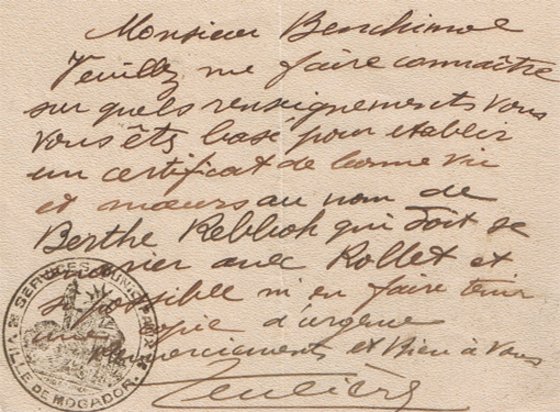 Monsieur Benchimol
Veuillez me faire connaître
sur quels renseignements vous
vous êtes basé pour etablir
un certificat de bonne vie
et mœurs au nom de
Berthe Rebboh qui doit se
marier avec Rollet et
si possible m'en faire tenir
une copie d'urgence
Remerciements et Bien à vous
SERVICES MUNICIPAUX
VILLE DE MOGADOR